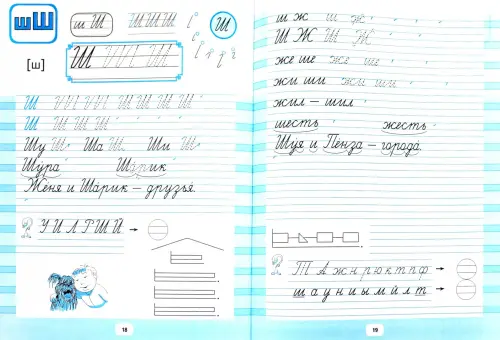 шШ
ш Ш Ш Ш Ш Ш
[ш]
Ш
Ш
Ш
Шу Ша Ши
Шура Шарик
Женя и Шарик – друзья.
У И Л Г Ш Й →
18
ш ж ш ж
Ш Ж Ш Ж
же ше же ше
жи ши жи ши
жил – шил
шесть жесть
Шуя и Пенза – города.
Т А Ж Н Р Ю К Т П Ф →
ш а у н и ы м й л т →
19